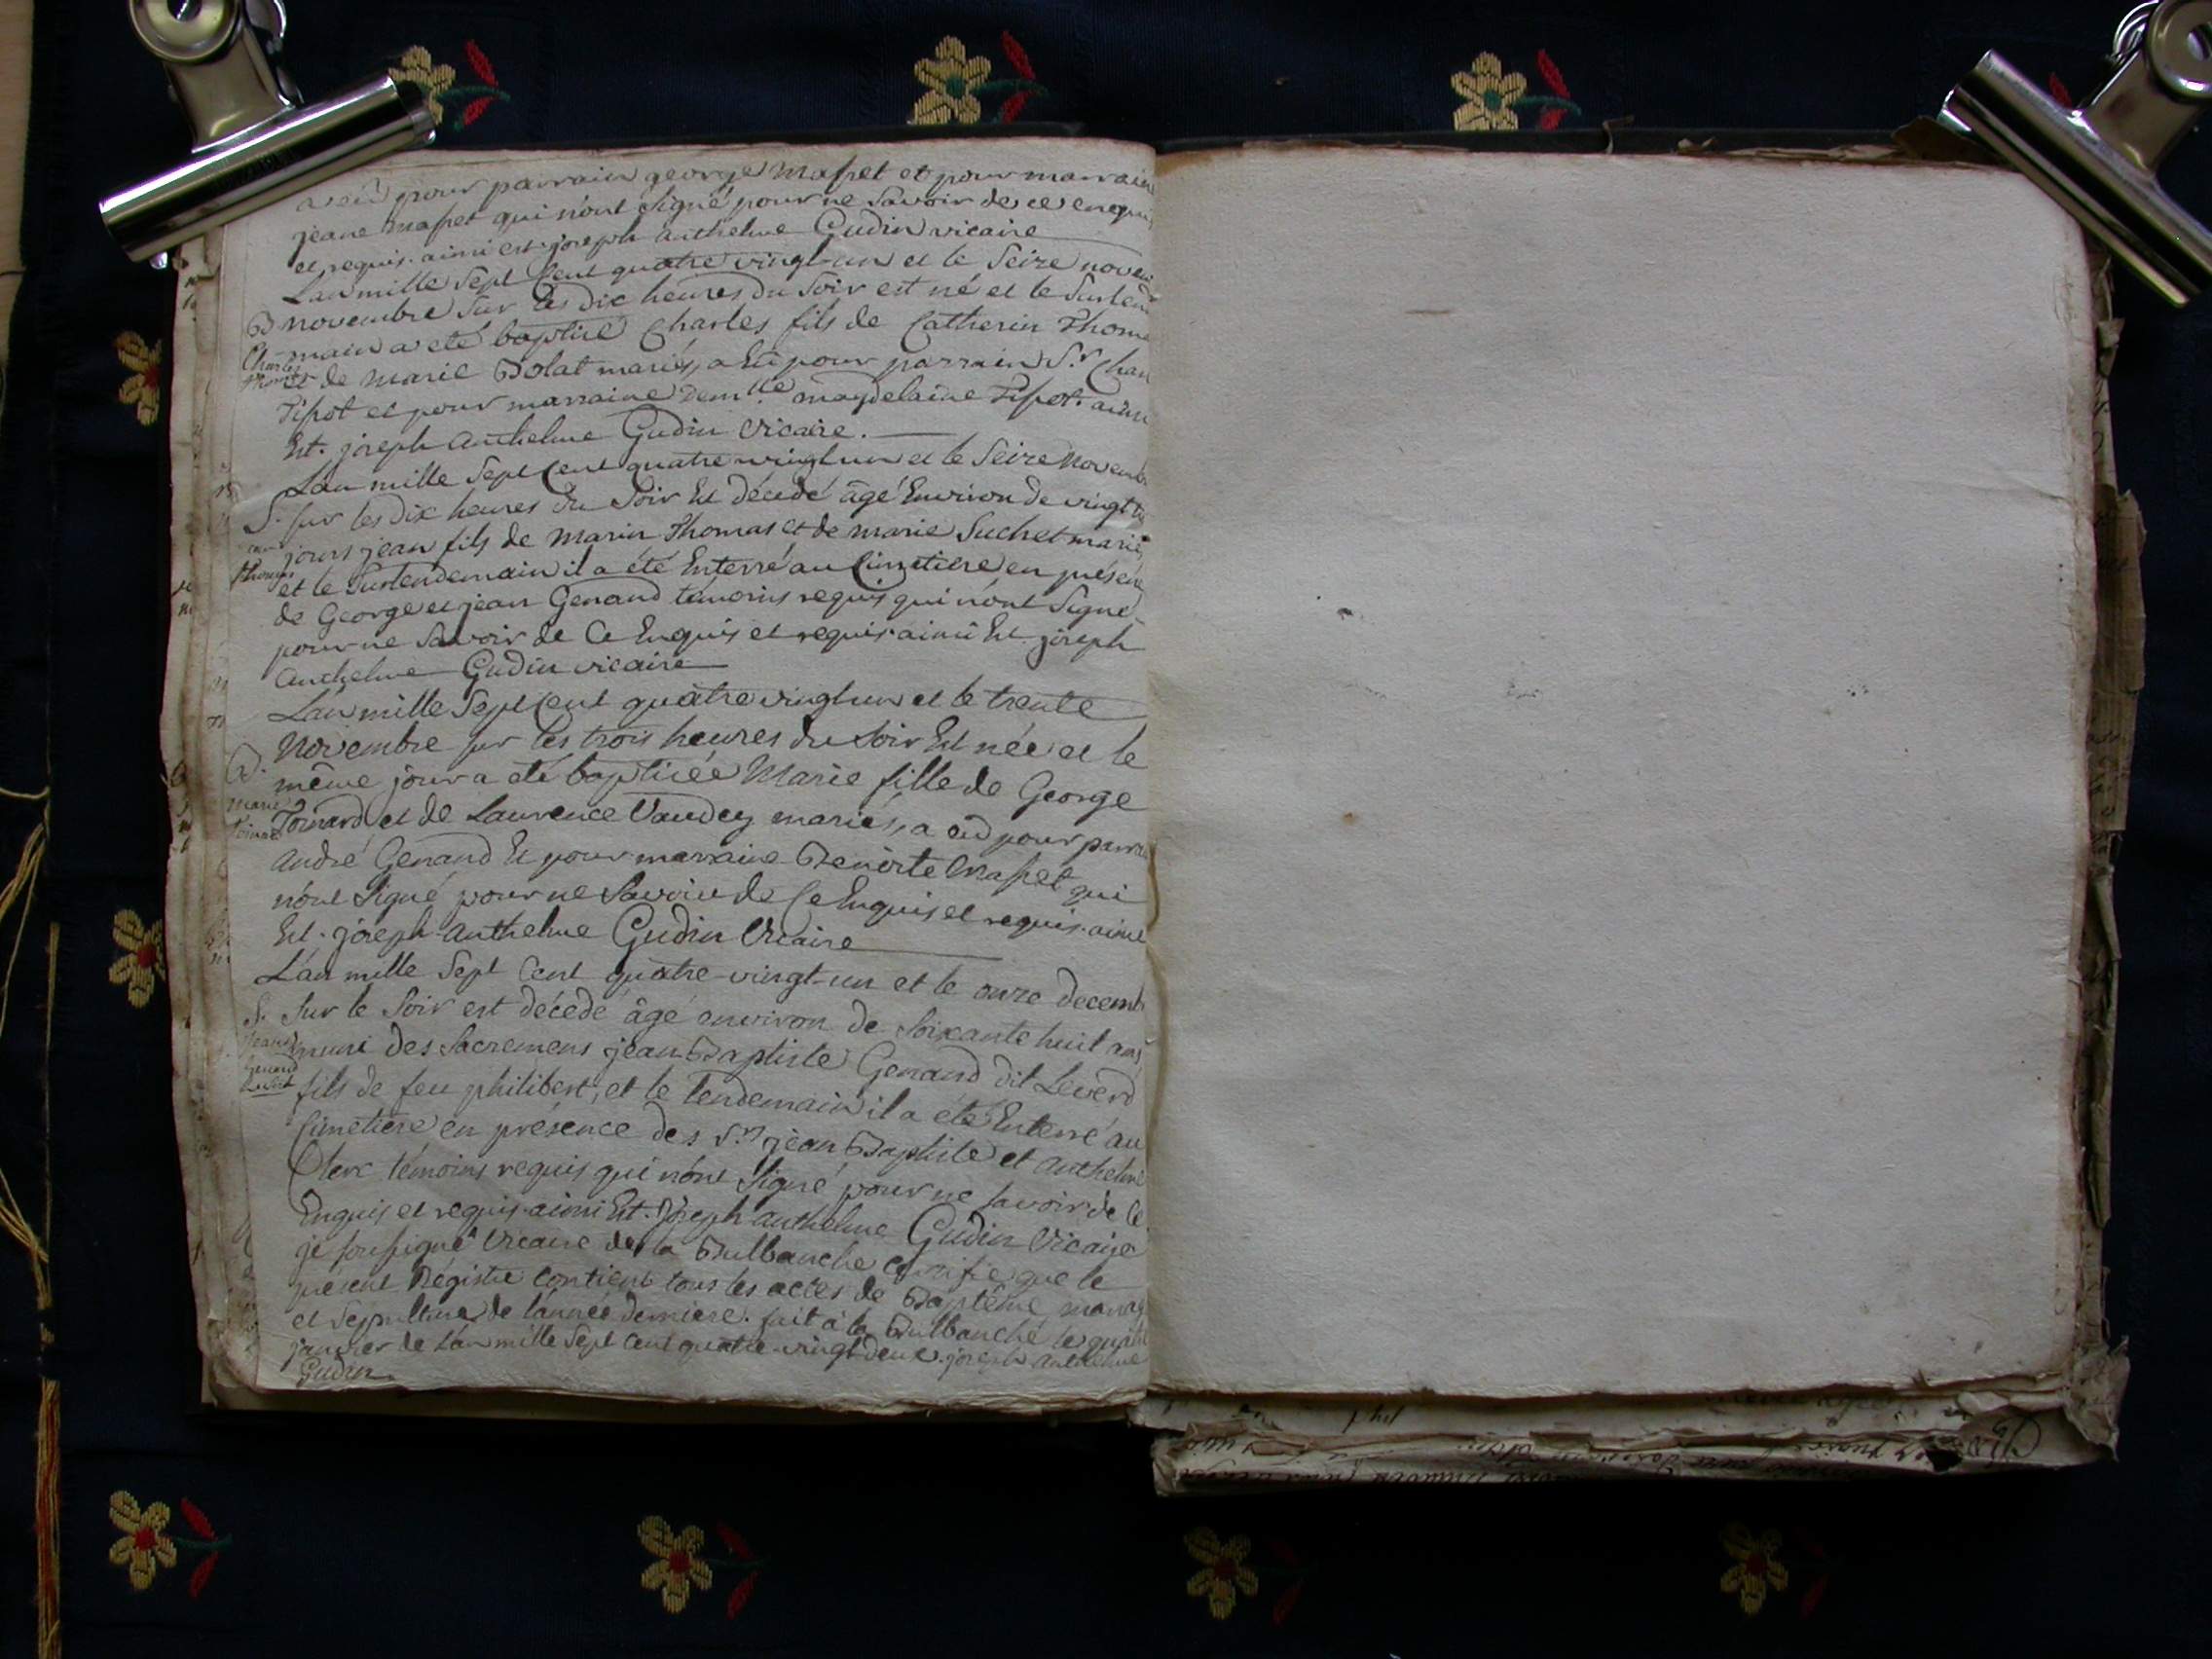 a eû pour parrain george Maset et pour marrain
jeane Maset qui n'ont signé pour ne Savoir de ce enquis
et requis. ainsi est. joseph anthelme Gudin vicaire
L'an mille Sept Cent quatre vingt-un et le Seize novem
B novembre Sur les dix heures du Soir est né et le Surlen
Charles Thomas
main a eté baptisé Charles fils de Catherin Thom
et de Marie Bolat mariés, a Eû pour parrain S.r Char
Tissot et pour marraine Dem.lle magdelaine Tissot. ainsi
Est. joseph anthelme Gudin Vicaire.
L'an mille Sept Cent quatre vingt un et le Seize Novemb
S. sur les dix heures du Soir Est décédé âgé Environ de vingt
jours jean fils de Marin Thomas et de marie Suchet mariés,
Thomas
et le Surlendemain il a été Enterré au Cimetiere en présen
de George et jean Genand témoins requis qui n'ont Signé
pour ne Savoir de Ce Enquis et requis. ainsi Est. joseph
Anthelme Gudin vicaire
L'an mille Sept Cent quatre vingt un et le trente
Novembre sur les trois heures du Soir Est née et le
B.
même jour a eté baptisée Marie fille de George
Marie Toinard
Toinard et de Laurence Vaudey mariés, a eû pour parra
André Genand Et pour marraine Benoite Maset qui
n'ont Signé pour ne Savoir de Ce Enquis et requis. ainsi
Est. joseph Anthelme Gudin Vicaire
L'an mille Sept Cent quatre-vingt-un et le onze decemb
S. Sur le Soir est décedé âgé environ de Soixante huit ans
Jean Genand
muni des Sacremens jean Baptiste Genand dit Leverd
fils de feu philibert, et le lendemain il a été Enterré au
Cimetiere en présence des S.rs jean Baptiste et anthelme
Clerc témoins requis qui n'ont Signé pour ne Savoir de Ce
Enquis et requis. ainsi Est. Joseph anthelme Gudin Vicaire
je soussigné Vicaire de la Bulbanche Certifie que le
present Régistre Contient tous les actes de Baptême, mariag
et Sepulture de l'année derniere. fait à la Bulbanche le quatr
janvier de l'an mille Sept Cent quatre-vingt-deux. joseph anthelme
Gudin